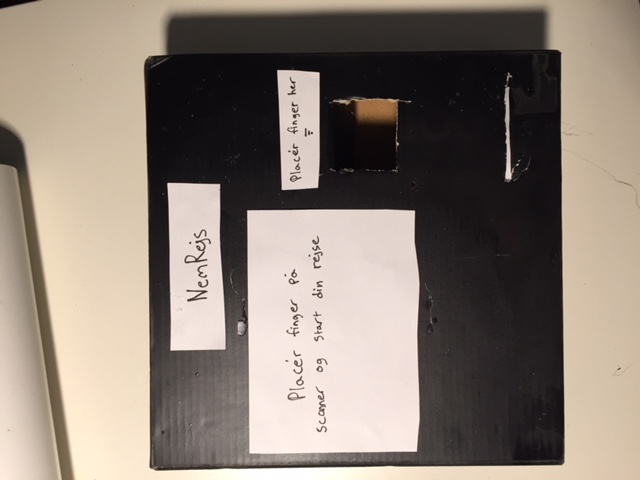 NemRejs
Placér finger på
scanner og start din rejse
Placér finger her